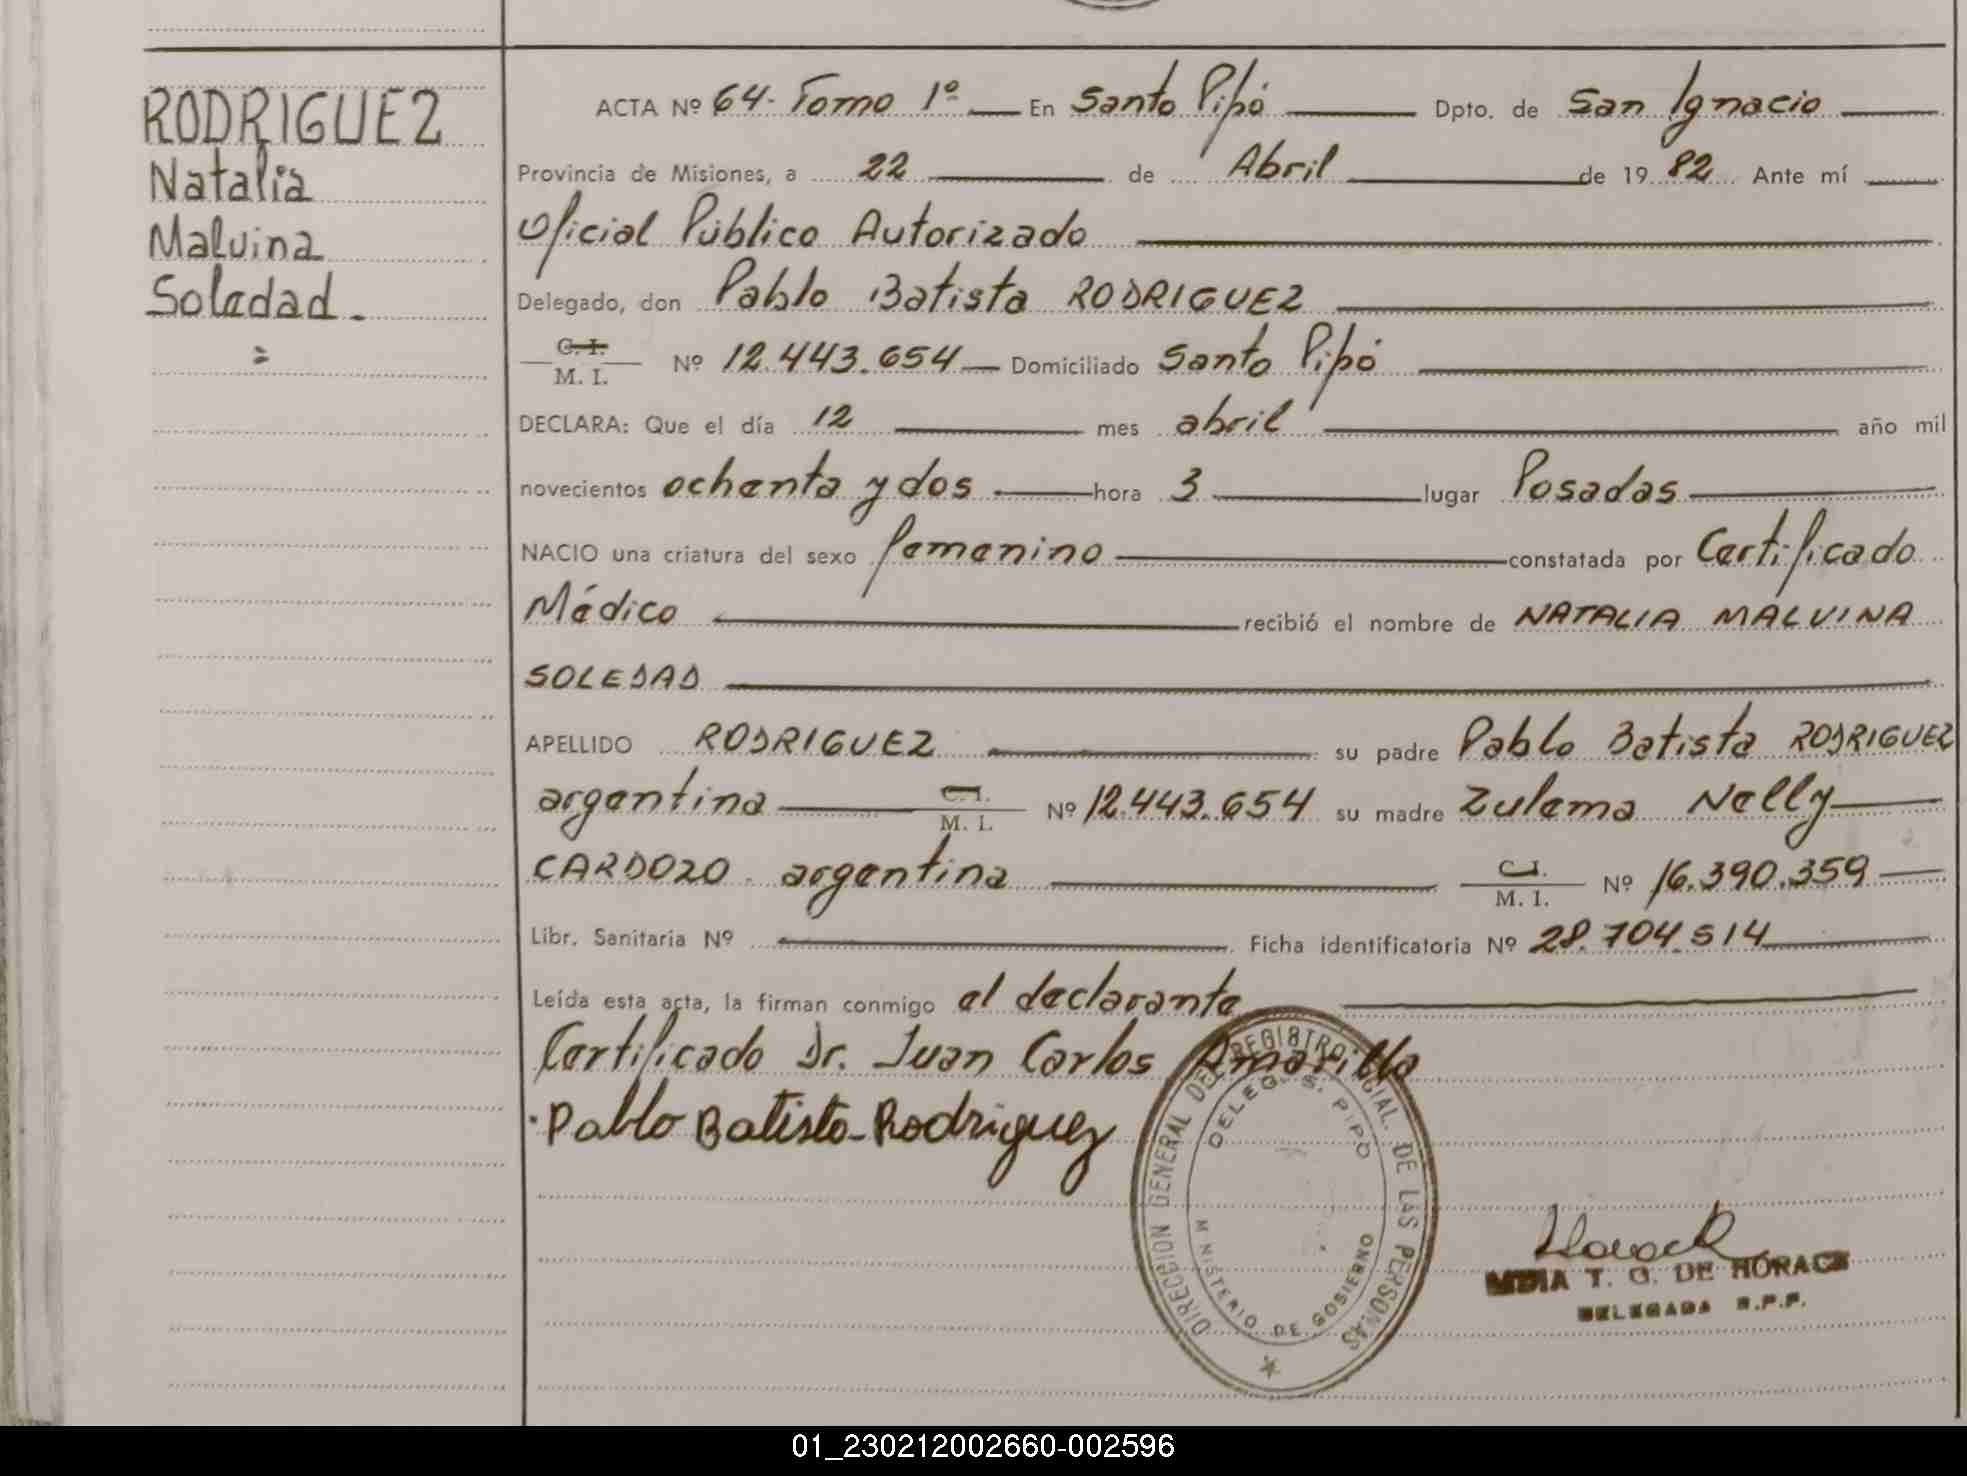 RODRIGUEZ
Natalia
Malvina
Soledad.
=
ACTA Nº 64- Tomo 1º En Santo Pipó Dpto. de San Ignacio
Provincia de Misiones, a 22 de Abril de 19 82 Ante mí
Oficial Público Autorizado
Delegado, don Pablo Batista RODRIGUEZ
C. I. M. I. Nº 12.443.654 Domiciliado Santo Pipó
DECLARA: Que el día 12 mes abril año mil
novecientos ochenta y dos hora 3 lugar Posadas
NACIO una criatura del sexo femenino constatada por Certificado
Médico recibió el nombre de NATALIA MALVINA
SOLEDAD
APELLIDO RODRIGUEZ su padre Pablo Batista RODRIGUEZ
argentina C. I. M. I. Nº 12.443.654 su madre Zulema Nelly
CARDOZO argentina C. I. M. I. Nº 16.390.359
Libr. Sanitaria Nº Ficha identificatoria Nº 28.704.514
Leída esta acta, la firman conmigo el declarante
Certificado Dr. Juan Carlos Amarilla
Pablo Batisto-Rodriguez
DIRECCION GENERAL DEL REGISTRO DE LAS PERSONAS
DELEG. S. PIPO
MINISTERIO DE GOBIERNO
T. G. DE HORACK
DELEGADA R.P.P.
01_230212002660-002596